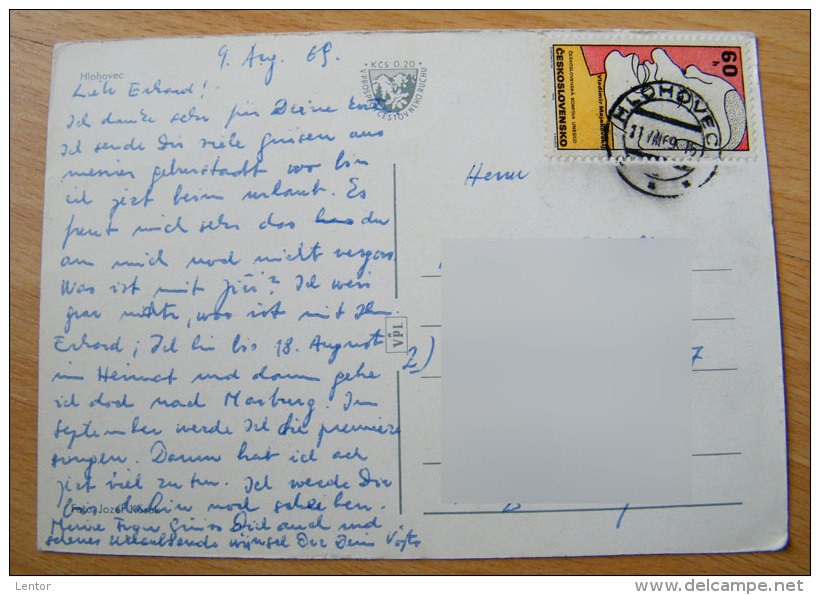 9. Aug. 69.
Hlohovec
KČS 0.20
V PROSPĚCH CESTOVNÉHO RUCHU
60 h
ČESKOSLOVENSKO
ČESKOSLOVENSKÁ KOMISIA UNESCO
Vladimír Majakovskij
HLOHOVEC
Lieb Erhard!
Ich danke sehr für Deine
Ich sende dir viele grüsen aus
meiner geburstadt wo bin
ich jezt beim urlaub. Es
freut mich sehr das du
an mich noch nicht vergass.
Was ist mit Jiří? Ich weis
gar nichts, was ist mit Ihm.
Erhard, Ich bin bis 18. August
im Heimat und dann gehe
ich doch nach Marburg. Im
September werde Ich die premiere
singen. Darum hab ich auch
jezt viel zu tun. Ich werde Dir
noch schreiben.
Meine Frau Grüss Dich auch und
schenes Urlaubsende wünscht Dir Dein
Foto: Jozef
VPL
Herrn
2)
7
Lentor
delcampe.net